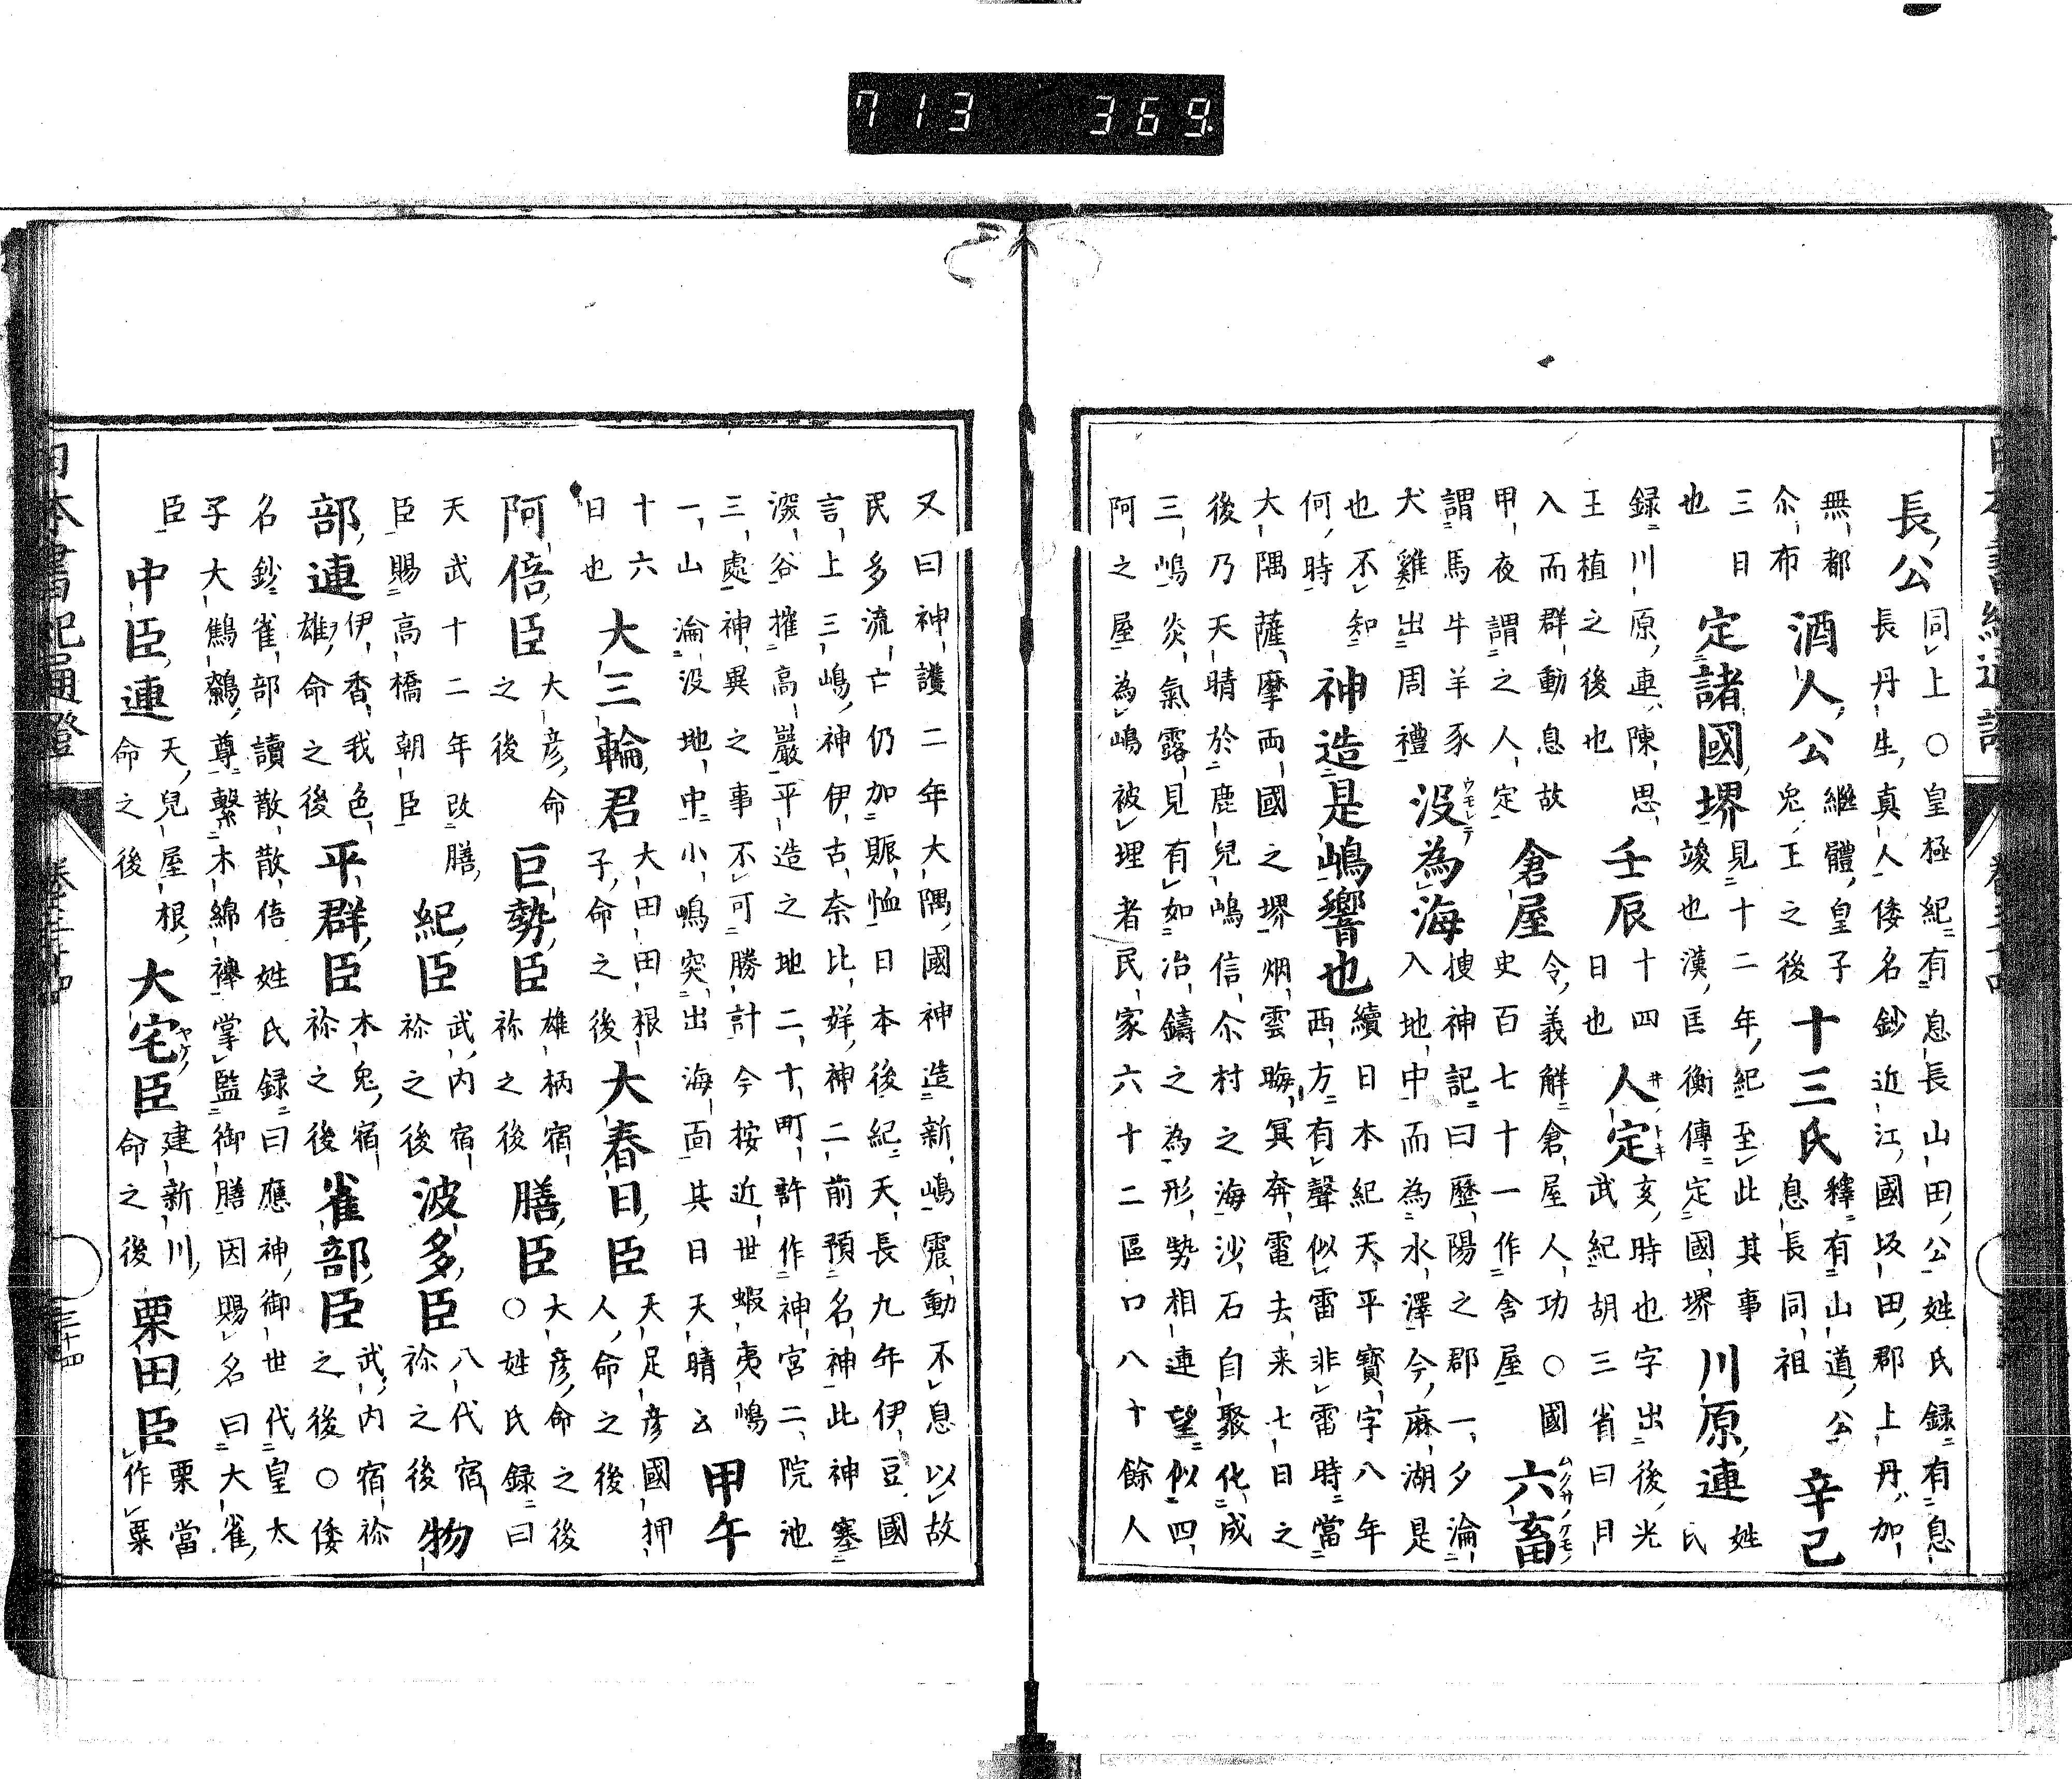 713 369
長公
同上〇皇極紀有息長山田公姓氏録有息
長丹生真人倭名鈔近江國坂田郡上丹加
無都
尒布
酒人公
繼體皇子
兎王之後
十三氏
釋有山道公
息長同祖
辛已
三日
也
定諸國堺
見十二年紀至此其事
竣也漢匡衡傳定國堺
川原連
姓
氏
録川原連陳思
王植之後也
壬辰
十四
日也
人定
亥時也字出後光
武紀胡三省曰日
入而群動息故
甲夜謂之人定
倉屋
令義解倉屋人功〇國
史百七十一作舎屋
六畜
謂馬牛羊豕
犬雞出周禮
没為海
捜神記曰歷陽之郡一夕淪
入地中而為水澤今麻湖是
也不知
何時
神造是嶋響也
續日本紀天平寳字八年
西方有聲似雷非雷時當
大隅薩摩両國之堺烟雲晦冥奔電去来七日之
後乃天晴於鹿兒嶋信尒村之海沙石自聚化成
三嶋炎氣露見有如冶鑄之為形勢相連望似四
阿之屋為嶋被埋者民家六十二區口八十餘人
又曰神護二年大隅國神造新嶋震動不息以故
民多流亡仍加賑恤日本後紀天長九年伊豆國
言上三嶋神伊古奈比咩神二前預名神此神塞
深谷摧高巖平造之地二十町許作神宮二院池
三處神異之事不可勝計今按近世蝦夷嶋
一山淪没地中小嶋突出海面其日天晴云
甲午
十六
日也
大三輪君
大田田根
子命之後
大春日臣
天足彦國押
人命之後
阿倍臣
大彦命
之後
巨勢臣
雄柄宿
祢之後
膳臣
大彦命之後
〇姓氏録曰
天武十二年改膳
臣賜高橋朝臣
紀臣
武内宿
祢之後
波多臣
八代宿
祢之後
物
部連
伊香我色
雄命之後
平群臣
木兔宿
祢之後
雀部臣
武内宿祢
之後〇倭
名鈔雀部讀散散倍姓氏録曰應神御世代皇太
子大鷦鷯尊繋木綿襷掌監御膳因賜名曰大雀
臣
中臣連
天兒屋根
命之後
大宅臣
建新川
命之後
栗田臣
栗當
作粟
日本書紀通證
三十四